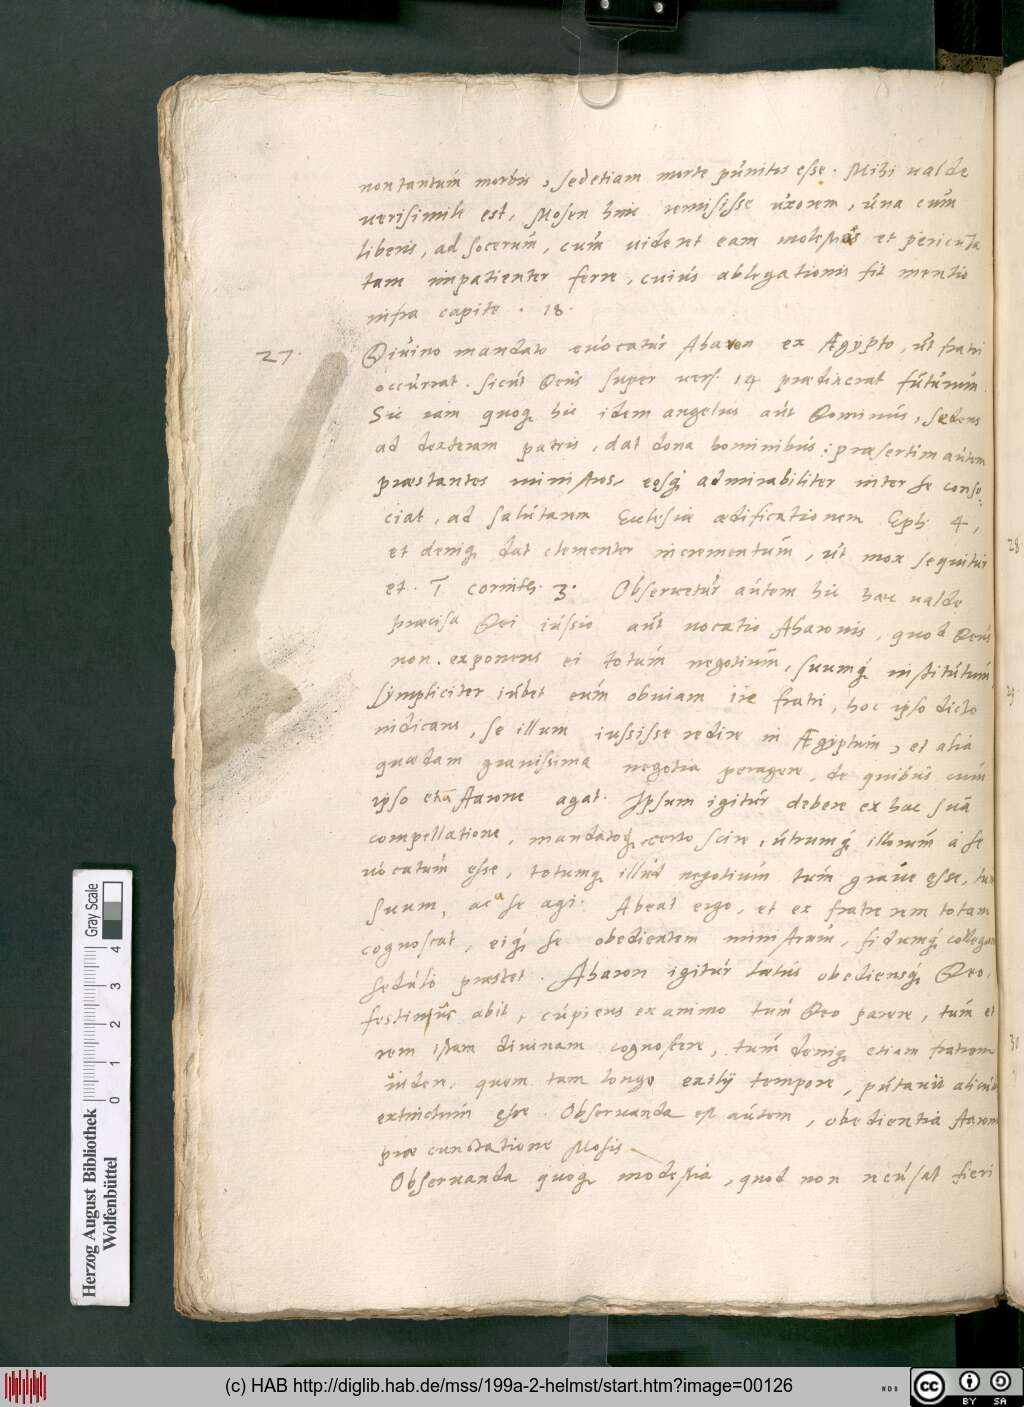 non tantum morbis, sed etiam morte punitos esse. Mihi valde
verisimile est, Mosen hinc remisisse uxorem, una cum
liberis, ad socerum, cum videret eam molestias et pericula
tam impatienter ferre, cuius ablegationis fit mentio
infra capite. 18.
27.
Divino mandato evocatur Aharon ex Ægypto, ut fratri
occurrat. sicut Deus super vers. 14 prædixerat futurum.
Sic iam quoq; hic idem angelus aut Dominus, sedens
ad dexteram patris, dat dona hominibus: præsertim autem
præstantes ministros, eosq; admirabiliter inter se conso-
ciat, ad salutarem Ecclesiæ ædificationem Eph. 4,
et deniq; dat clementer incrementum, ut mox sequitur
et. I corinth. 3. Observetur autem hic hæc valde
præcisa Dei iussio aut vocatio Aharonis, quod Deus
non exponens ei totum negotium, suumq; institutum,
sympliciter iubet eum obviam ire fratri, hoc ipso dicto
indicans, se illum iussisse redire in Ægyptum, et alia
quædam gravissima negotia peragere, de quibus cum
ipso etiã Aarone agat. Ipsum igitur debere ex hac sua
compellatione, mandatoq; certo scire, utrumq; illorum a se
vocatum esse, totumq; illud negotium tum grave esse, tum
suum, ac a se agi. Abeat ergo, et ex fratre rem totam
cognoscat, eiq; se obedientem ministrum, fidumq; collegam
sedulo præstet. Aharon igitur lætus obediensq; Deo,
abit, cupiens ex animo tum Deo parere, tum et
rem istam divinam cognoscere, tum deniq; etiam fratrem
videre, quem tam longo exilij tempore, putavit alicubi
extinctum esse. Observanda est autem, obedientia Aaronis
præ cunctatione Mosis
Observanda quoq; modestia, quod non recusat fieri
28
29
30
Herzog August Bibliothek
Wolfenbüttel
0 1 2 3 4
Gray Scale
(c) HAB http://diglib.hab.de/mss/199a-2-helmst/start.htm?image=00126
WDB
cc
BY SA